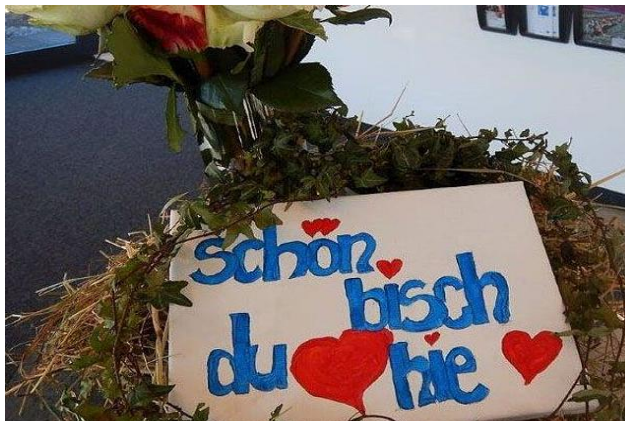 schön
bisch
du hie